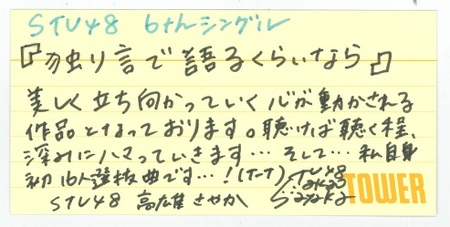 STU48 6thシングル
『独り言で語るくらいなら』
美しく立ち向かっていく心が動かされる
作品となっております。聴けば聴く程、
深みにハマっていきます…そして…私自身
初 16人選抜曲です…!(T-T)
STU48 高雄さやか
STU48
Sayaka
TOWER